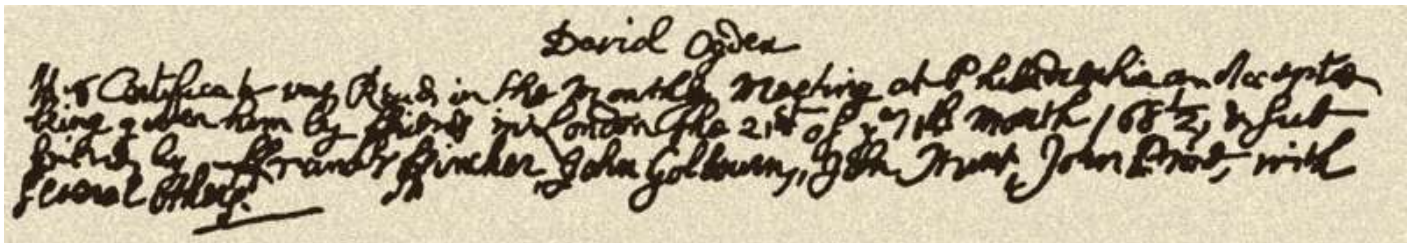 David Ogden
His Certificate was Read in the Monthly Meeting at Philadelphia and accepted
being given him by friends in London the 21st of ye 6th month 1682, & sub
scribed by Francis Fincher, John Golbourn, John Hunt, John Pront, with
several others.